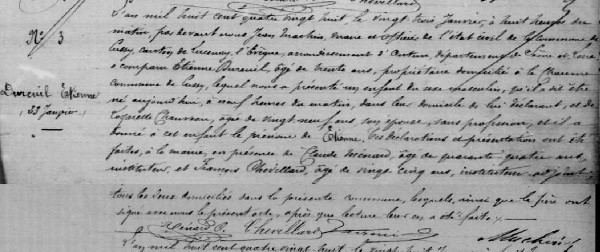 Chevellard
N° 3
Dureuil Etienne
23 Janvier
L'an mil huit cent quatre vingt huit, le vingt trois Janvier, à huit heures du
matin, par devant nous Jean Machin, maire et officier de l'état civil de la commune de
Cussy, canton de Lucenay, l'Evêque, arrondissement d'Autun, département de Saône et Loire
a comparu Etienne Dureuil, âgé de trente ans, propriétaire domicilié à la
commune de Cussy, lequel nous a présenté un enfant du sexe masculin, qu'il a dit être
né aujourd'hui, à heures du matin, dans leur domicile de lui déclarant, et de
âgée de vingt neuf ans son épouse, sans profession, et il a
donné à cet enfant le prénom de Etienne. Ces déclarations et présentation ont été
faites, à la mairie, en présence de Claude Ménard, âgé de quarante quatre ans,
instituteur, et François Chevellard, âgé de vingt cinq ans, instituteur adjoint,
tous les deux domiciliés dans la présente commune, lesquels, ainsi que le père ont
signé avec nous le présent acte, après que lecture leur en a été faite.
Ménard C. Chevellard
L'an mil huit cent quatre vingt huit le vingt